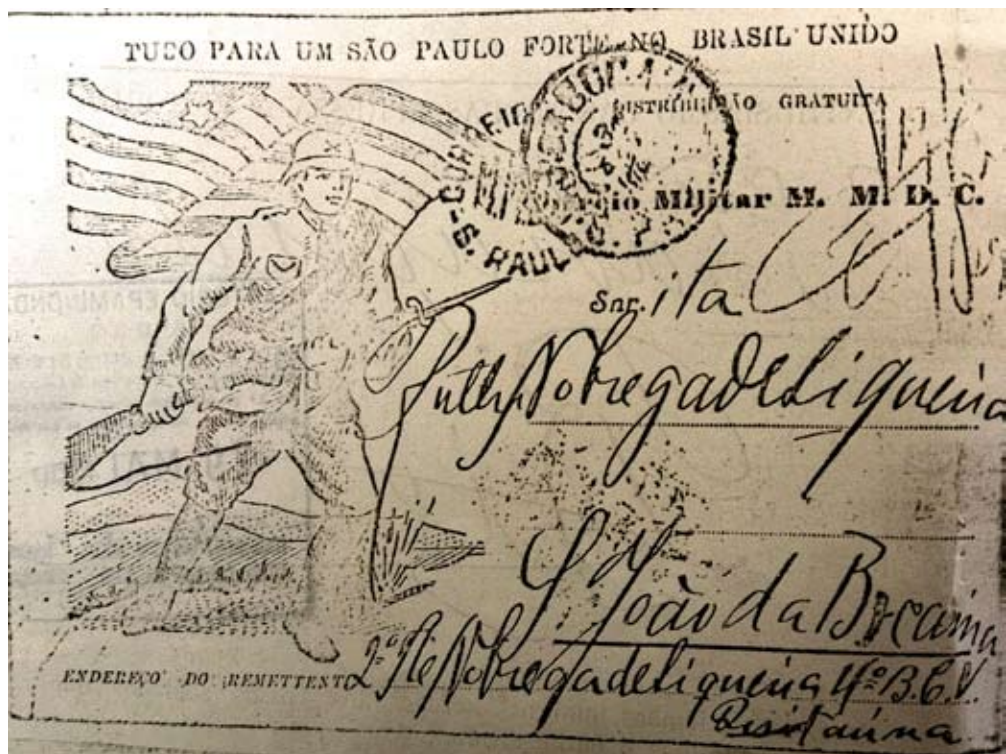 TUDO PARA UM SÃO PAULO FORTE NO BRASIL UNIDO
DISTRIBUIÇÃO GRATUITA
Correio Militar M. M. D. C.
CORREIO
S. PAULO
Snr.ita
Nobrega de Siqueira
S. João da Bocaina
ENDEREÇO DO REMETTENTE 2º Te Nobrega de Siqueira 4º B. C. V.